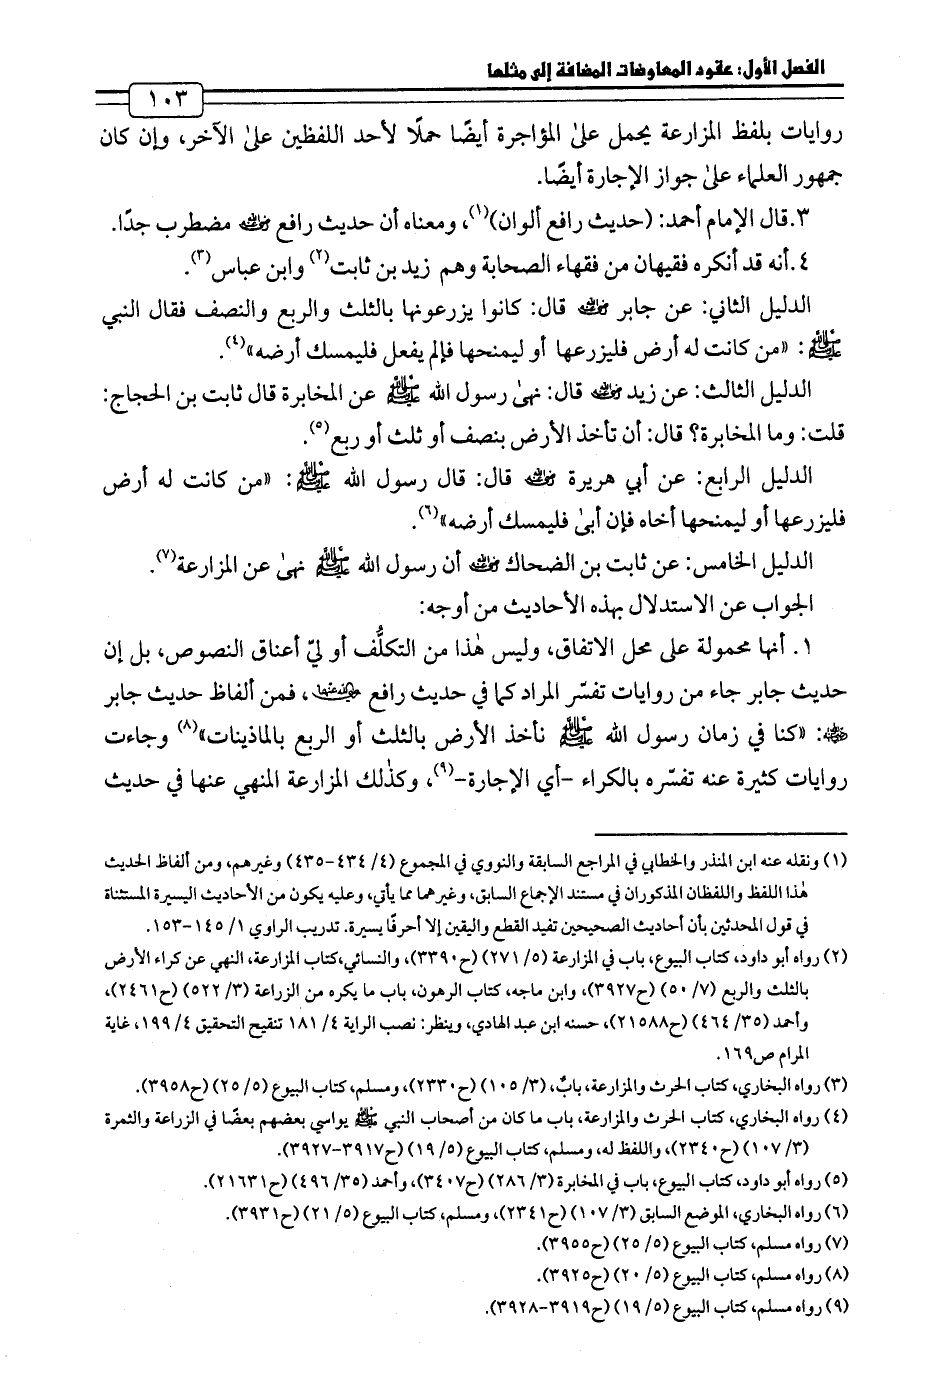 الفصل الأول: عقود المعاوضات المضافة إلى مثلها
١٠٣
روايات بلفظ المزارعة يحمل علىٰ المؤاجرة أيضًا حملًا لأحد اللفظين علىٰ الآخر، وإن كان
جمهور العلماء علىٰ جواز الإجارة أيضًا.
٣.قال الإمام أحمد: (حديث رافع ألوان)(١)، ومعناه أن حديث رافع رضي الله عنه مضطرب جدًا.
٤.أنه قد أنكره فقيهان من فقهاء الصحابة وهم زيد بن ثابت(٢) وابن عباس(٣).
الدليل الثاني: عن جابر رضي الله عنه قال: كانوا يزرعونها بالثلث والربع والنصف فقال النبي
ﷺ: «من كانت له أرض فليزرعها أو ليمنحها فإلم يفعل فليمسك أرضه»(٤).
الدليل الثالث: عن زيد رضي الله عنه قال: نهىٰ رسول الله ﷺ عن المخابرة قال ثابت بن الحجاج:
قلت: وما المخابرة؟ قال: أن تأخذ الأرض بنصف أو ثلث أو ربع(٥).
الدليل الرابع: عن أبي هريرة رضي الله عنه قال: قال رسول الله ﷺ: «من كانت له أرض
فليزرعها أو ليمنحها أخاه فإن أبىٰ فليمسك أرضه»(٦).
الدليل الخامس: عن ثابت بن الضحاك رضي الله عنه أن رسول الله ﷺ نهىٰ عن المزارعة(٧).
الجواب عن الاستدلال بهذه الأحاديث من أوجه:
١. أنها محمولة على محل الاتفاق، وليس هٰذا من التكلُّف أو ليّ أعناق النصوص، بل إن
حديث جابر جاء من روايات تفسّر المراد كما في حديث رافع رضي الله عنهما، فمن ألفاظ حديث جابر
رضي الله عنه: «كنا في زمان رسول الله ﷺ نأخذ الأرض بالثلث أو الربع بالماذينات»(٨) وجاءت
روايات كثيرة عنه تفسّره بالكراء -أي الإجارة-(٩)، وكذٰلك المزارعة المنهي عنها في حديث
(١) ونقله عنه ابن المنذر والخطابي في المراجع السابقة والنووي في المجموع (٤/ ٤٣٤-٤٣٥) وغيرهم، ومن ألفاظ الحديث
هٰذا اللفظ واللفظان المذكوران في مستند الإجماع السابق، وغيرهما مما يأتي، وعليه يكون من الأحاديث اليسيرة المستثناة
في قول المحدثين بأن أحاديث الصحيحين تفيد القطع واليقين إلا أحرفًا يسيرة. تدريب الراوي ١/ ١٤٥-١٥٣.
(٢) رواه أبو داود، كتاب البيوع، باب في المزارعة (٥/ ٢٧١) (ح٣٣٩٠)، والنسائي،كتاب المزارعة، النهي عن كراء الأرض
بالثلث والربع (٧/ ٥٠) (ح٣٩٢٧)، وابن ماجه، كتاب الرهون، باب ما يكره من الزراعة (٣/ ٥٢٢) (ح٢٤٦١)،
وأحمد (٣٥/ ٤٦٤) (ح٢١٥٨٨)، حسنه ابن عبد الهادي، وينظر: نصب الراية ٤/ ١٨١ تنقيح التحقيق ٤/ ١٩٩، غاية
المرام ص١٦٩.
(٣) رواه البخاري، كتاب الحرث والمزارعة، بابٌ، (٣/ ١٠٥) (ح٢٣٣٠)، ومسلم، كتاب البيوع (٥/ ٢٥) (ح٣٩٥٨).
(٤) رواه البخاري، كتاب الحرث والمزارعة، باب ما كان من أصحاب النبي ﷺ يواسي بعضهم بعضًا في الزراعة والثمرة
(٣/ ١٠٧) (ح٢٣٤٠)، واللفظ له، ومسلم، كتاب البيوع (٥/ ١٩) (ح٣٩١٧-٣٩٢٧).
(٥) رواه أبو داود، كتاب البيوع، باب في المخابرة (٣/ ٢٨٦) (ح٣٤٠٧)، وأحمد (٣٥/ ٤٩٦) (ح٢١٦٣١).
(٦) رواه البخاري، الموضع السابق (٣/ ١٠٧) (ح٢٣٤١)، ومسلم، كتاب البيوع (٥/ ٢١) (ح٣٩٣١).
(٧) رواه مسلم، كتاب البيوع (٥/ ٢٥) (ح٣٩٥٥).
(٨) رواه مسلم، كتاب البيوع (٥/ ٢٠) (ح٣٩٢٥).
(٩) رواه مسلم، كتاب البيوع (٥/ ١٩) (ح٣٩١٩-٣٩٢٨).